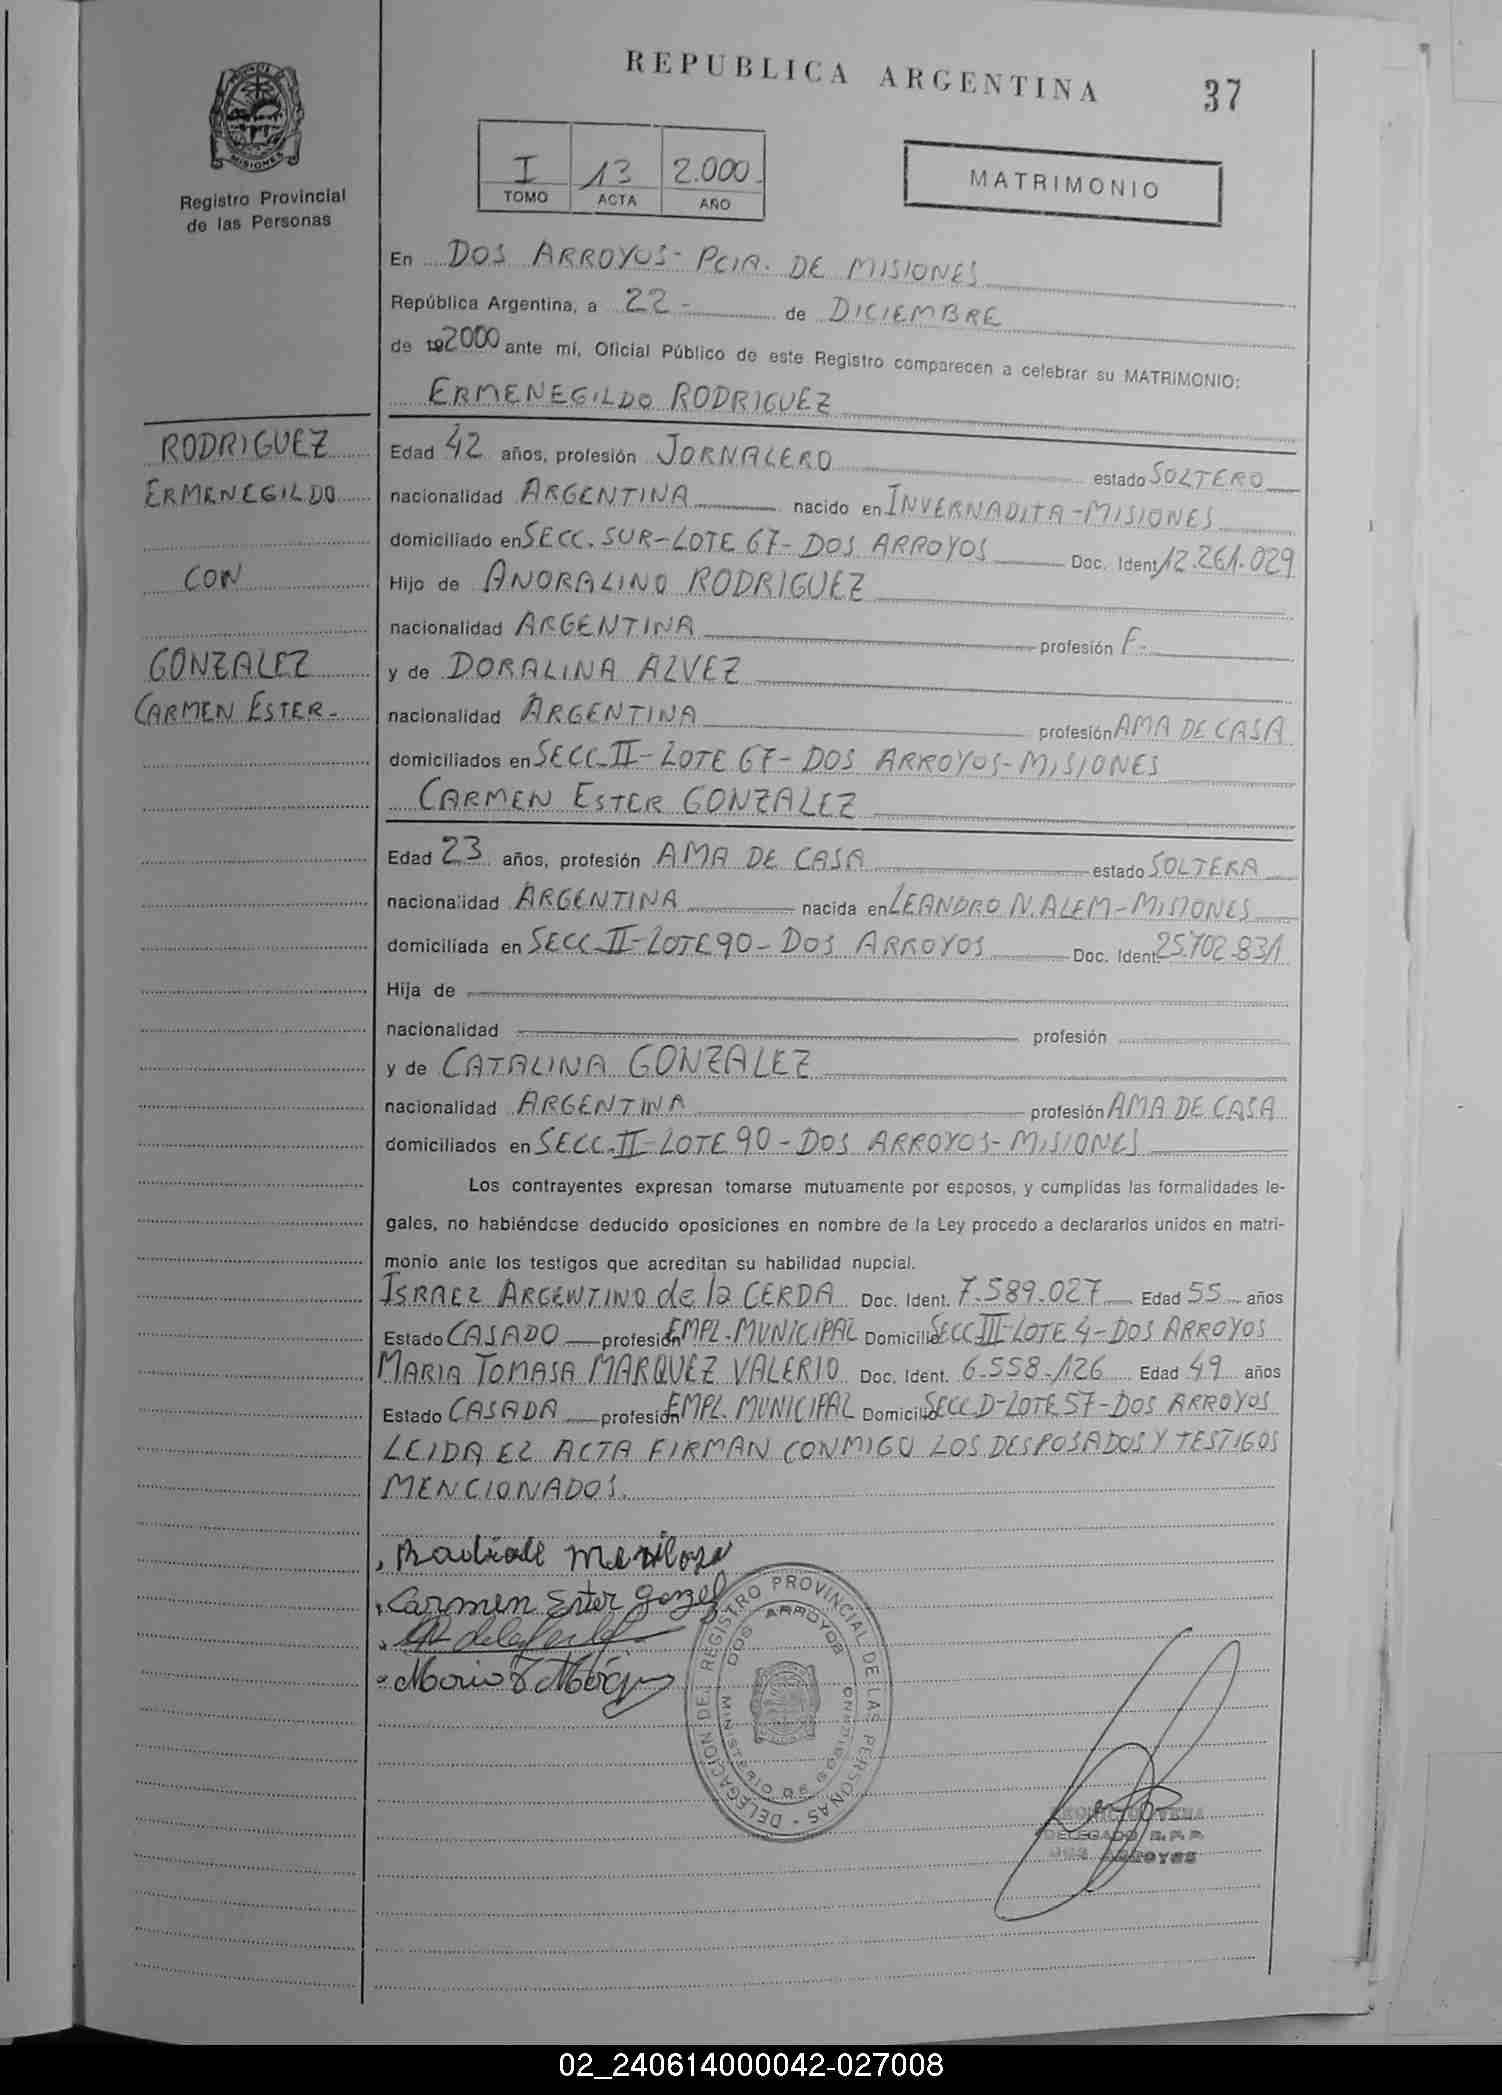 REPUBLICA ARGENTINA
37
PROVINCIA DE MISIONES
Registro Provincial
de las Personas
I 13 2.000.
TOMO ACTA AÑO
MATRIMONIO
En DOS ARROYOS- PCIA. DE MISIONES
República Argentina, a 22- de DICIEMBRE
de 192000 ante mí, Oficial Público de este Registro comparecen a celebrar su MATRIMONIO:
ERMENEGILDO RODRIGUEZ
RODRIGUEZ
ERMENEGILDO
CON
GONZALEZ
CARMEN ESTER-
Edad 42 años, profesión JORNALERO estado SOLTERO
nacionalidad ARGENTINA nacido en INVERNADITA-MISIONES
domiciliado en SECC. SUR-LOTE 67- DOS ARROYOS Doc. Ident 12.261.029
Hijo de ANORALINO RODRIGUEZ
nacionalidad ARGENTINA profesión F.-
y de DORALINA ALVEZ
nacionalidad ARGENTINA profesión AMA DE CASA
domiciliados en SECC-II-LOTE 67- DOS ARROYOS-MISIONES
CARMEN ESTER GONZALEZ
Edad 23 años, profesión AMA DE CASA estado SOLTERA
nacionalidad ARGENTINA nacida en LEANDRO N. ALEM-MISIONES
domiciliada en SECC-II-LOTE 90- DOS ARROYOS Doc. Ident. 25.702.831
Hija de
nacionalidad profesión
y de CATALINA GONZALEZ
nacionalidad ARGENTINA profesión AMA DE CASA
domiciliados en SECC.II-LOTE 90-DOS ARROYOS-MISIONES
Los contrayentes expresan tomarse mutuamente por esposos, y cumplidas las formalidades le-
gales, no habiéndose deducido oposiciones en nombre de la Ley procedo a declararlos unidos en matri-
monio ante los testigos que acreditan su habilidad nupcial.
ISRAEL ARGENTINO de la CERDA Doc. Ident. 7.589.027 Edad 55 años
Estado CASADO profesión EMPL.MUNICIPAL Domicilio SECC III-LOTE 4-DOS ARROYOS
MARIA TOMASA MARQUEZ VALERIO Doc. Ident. 6.558.126 Edad 49 años
Estado CASADA profesión EMPL. MUNICIPAL Domicilio SECC D-LOTE 57-DOS ARROYOS
LEIDA EL ACTA FIRMAN CONMIGO LOS DESPOSADOS Y TESTIGOS
MENCIONADOS.
Carmen Ester
DELEGACION DEL REGISTRO PROVINCIAL DE LAS PERSONAS -
DOS ARROYOS
MINISTERIO DE GOBIERNO
DELEGADO R.P.P.
DOS ARROYOS
02_240614000042-027008